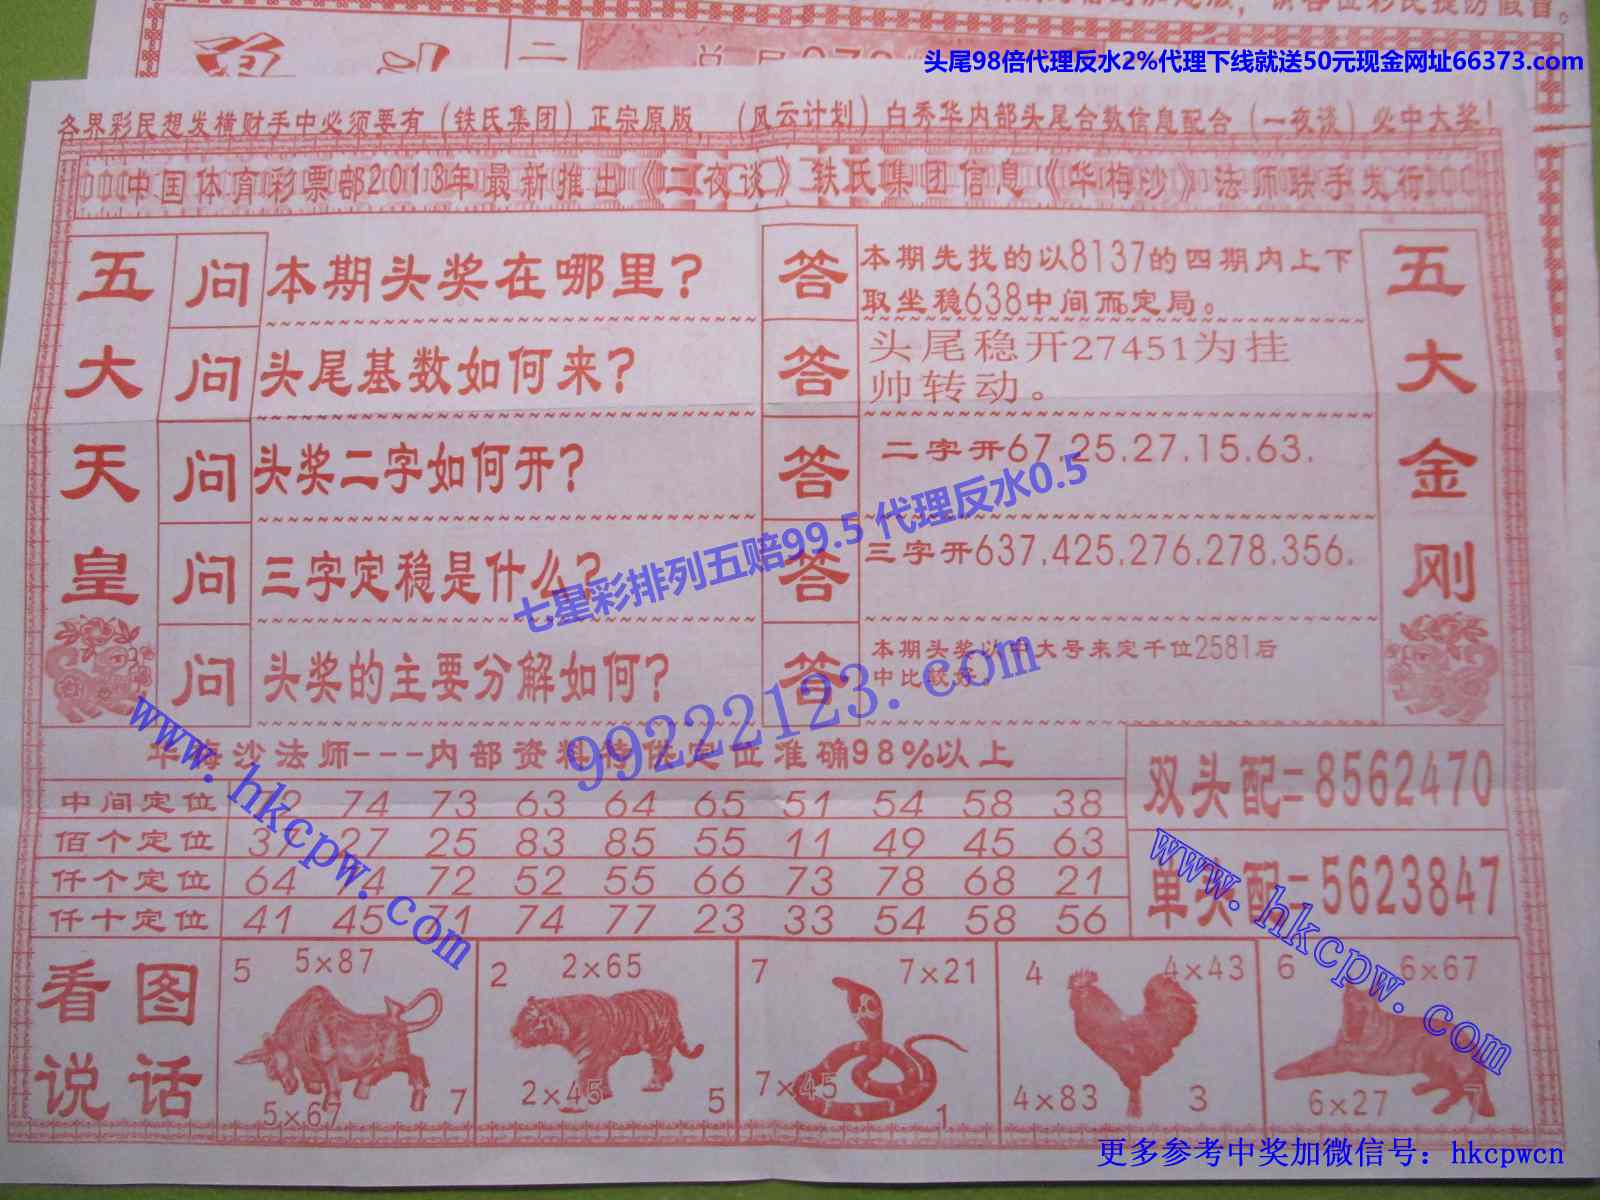 头尾98倍代理反水2%代理下线就送50元现金网址66373.com
各界彩民想发横财手中必须要有（铁氏集团）正宗原版，（风云计划）白秀华内部头尾合数信息配合（一夜谈）必中大奖！
中国体育彩票部2013年最新推出《二夜谈》铁氏集团信息《华梅沙》法师联手发行
五大天皇
问 本期头奖在哪里？
答 本期先找的以8137的四期内上下
取坐稳638中间而定局。
问 头尾基数如何来？
答 头尾稳开27451为挂
帅转动。
问 头奖二字如何开？
答 二字开67.25.27.15.63.
问 三字定稳是什么？
答 三字开637.425.276.278.356.
问 头奖的主要分解如何？
答 本期头奖以中大号来定千位2581后
中比较好。
五大金刚
七星彩排列五赔99.5 代理反水0.5
99222123.com
www.hkcpw.com
华梅沙法师---内部资料特供定位准确98%以上
中间定位 2 74 73 63 64 65 51 54 58 38
佰个定位 37 27 25 83 85 55 11 49 45 63
仟个定位 64 4 72 52 55 66 73 78 68 21
仟十定位 41 45 71 74 77 23 33 54 58 56
双头配二8562470
单头配二5623847
www.hkcpw.com
看图
说话
5 5×87
5×67 7
2 2×65
2×45 5
7 7×21
7×45 1
4 4×43
4×83 3
6 6×67
6×27 7
更多参考中奖加微信号：hkcpwcn